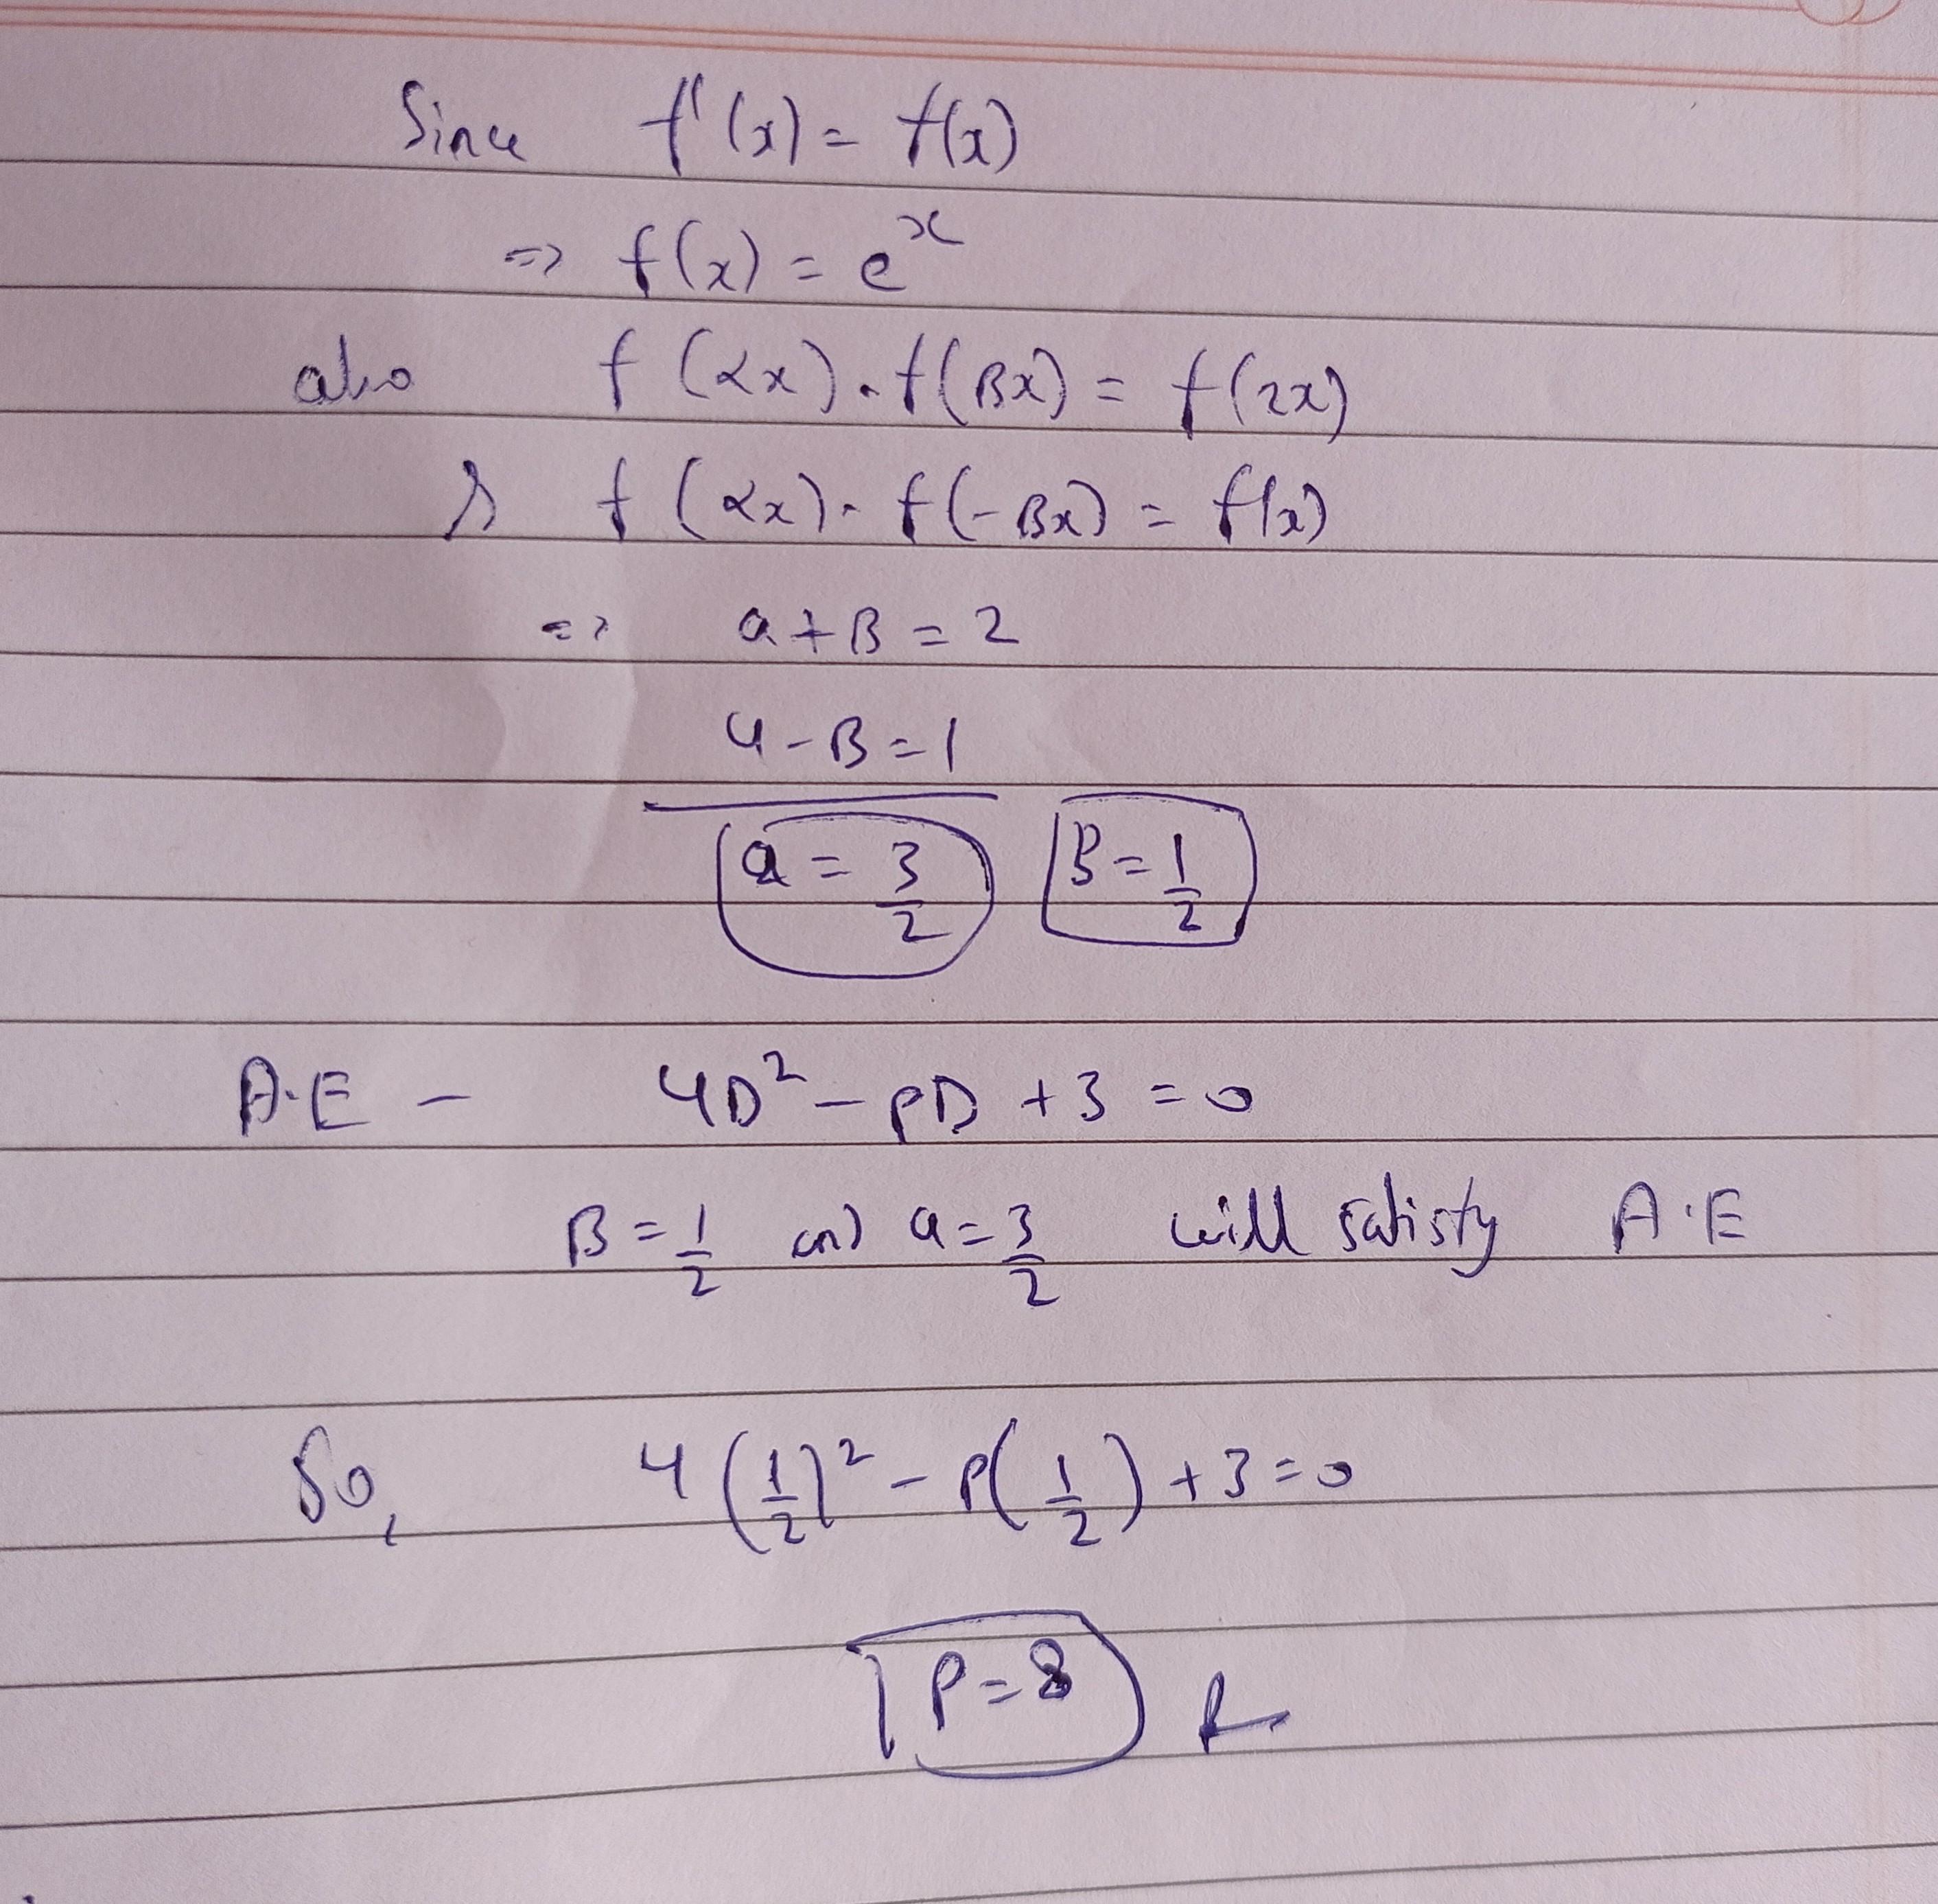 Since f'(x) = f(x)
=> f(x) = e^x
also f(αx).f(βx) = f(2x)
& f(αx). f(-βx) = f(x)
=> α+β = 2
α-β=1
α = 3/2 β = 1/2
A.E - 4D² - PD + 3 = 0
β = 1/2 and α = 3/2 will satisfy A.E
So, 4(1/2)² - P(1/2) + 3 = 0
P = 8